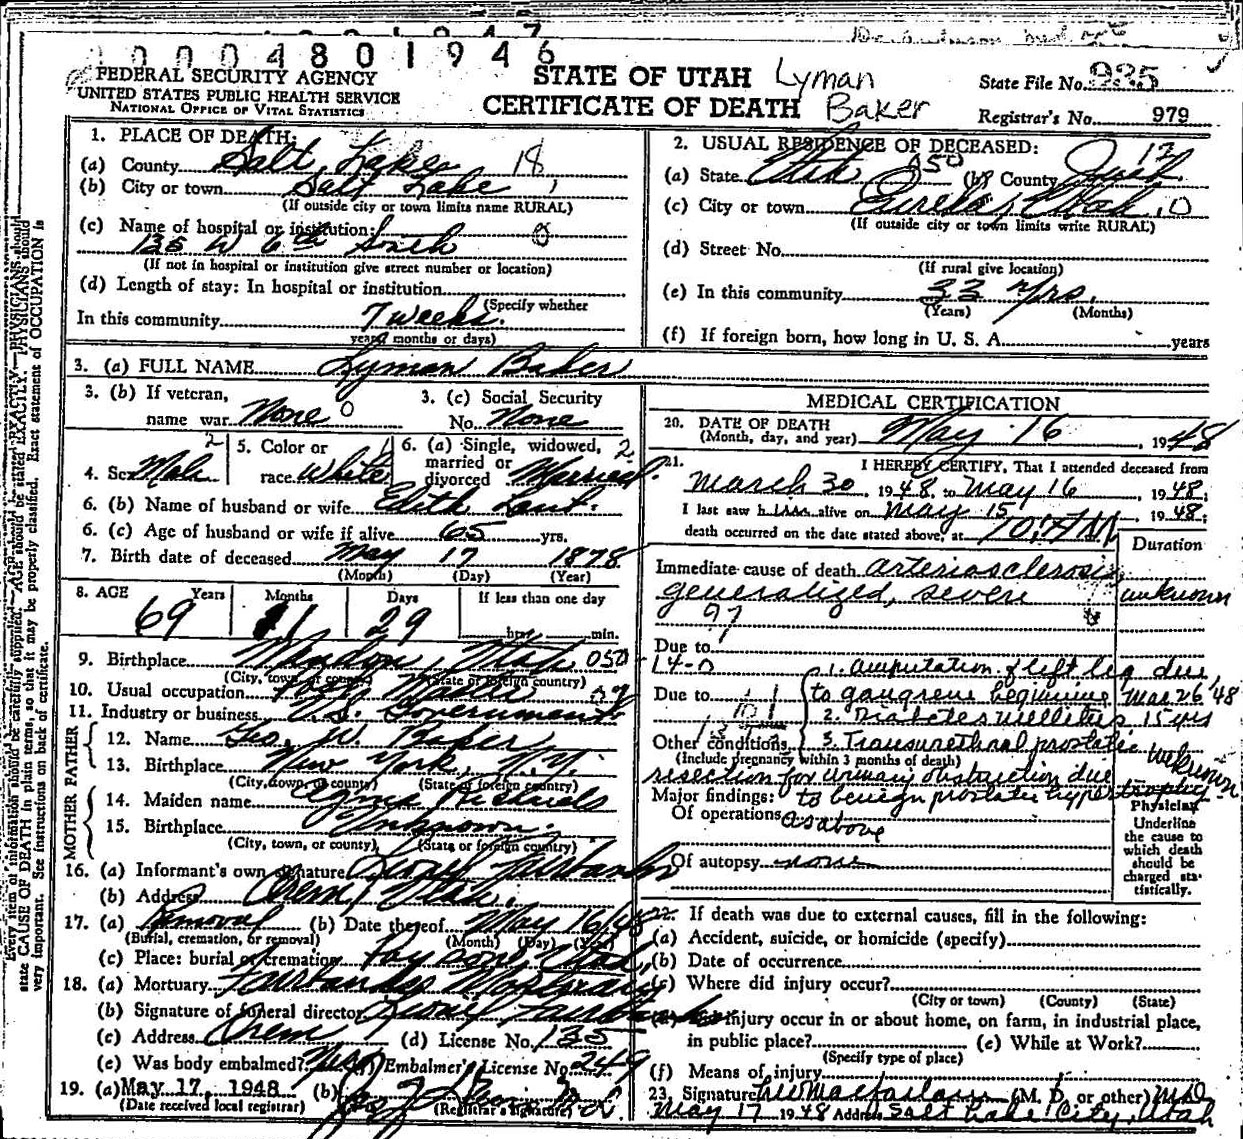 0004801946
FEDERAL SECURITY AGENCY
UNITED STATES PUBLIC HEALTH SERVICE
NATIONAL OFFICE OF VITAL STATISTICS
STATE OF UTAH
CERTIFICATE OF DEATH
Lyman
Baker
State File No. 925
Registrar's No. 979
1. PLACE OF DEATH:
(a) County Salt Lake 18
(b) City or town Salt Lake
(If outside city or town limits name RURAL)
(c) Name of hospital or institution:
135 W 6th South
(If not in hospital or institution give street number or location)
(d) Length of stay: In hospital or institution
(Specify whether
In this community 7 weeks.
years months or days)
2. USUAL RESIDENCE OF DECEASED:
(a) State Utah 050 (b) County Juab 12
(c) City or town Eureka, Utah. 0
(If outside city or town limits write RURAL)
(d) Street No.
(If rural give location)
(e) In this community 33 yrs.
(Years) (Months)
(f) If foreign born, how long in U. S. A. years
3. (a) FULL NAME Lyman Baker
3. (b) If veteran,
name war None 0
3. (c) Social Security
No. None
4. Sex Male 2
5. Color or
race White 1
6. (a) Single, widowed, 2
married or
divorced Married.
6. (b) Name of husband or wife Edith Lant.
6. (c) Age of husband or wife if alive 65 yrs.
7. Birth date of deceased May 17 1878
(Month) (Day) (Year)
8. AGE Years Months Days If less than one day
69 11 29 hrs. min.
9. Birthplace Mendon, Utah 050
(City, town, or county) (State or foreign country)
10. Usual occupation Post Master
11. Industry or business U.S. Government
FATHER
12. Name Geo. W. Baker
13. Birthplace New York, N.Y.
(City, town, or county) (State or foreign country)
MOTHER
14. Maiden name Agnes Richards
15. Birthplace Unknown.
(City, town, or county) (State or foreign country)
16. (a) Informant's own signature Fairbanks
(b) Address Orem, Utah.
17. (a) Removal (b) Date thereof May 16/48
(Burial, cremation, or removal) (Month) (Day) (Year)
(c) Place: burial or cremation Payson, Utah
18. (a) Mortuary Fairbanks Mortuary
(b) Signature of funeral director Fairbanks
(c) Address Orem (d) License No. 135
(e) Was body embalmed? Yes Embalmer's License No. 249
19. (a) May 17, 1948 (b)
(Date received local registrar) (Registrar's signature)
MEDICAL CERTIFICATION
20. DATE OF DEATH
(Month, day, and year) May 16, 1948
21. I HEREBY CERTIFY, That I attended deceased from
March 30, 1948, to May 16, 1948;
I last saw him alive on May 15, 1948;
death occurred on the date stated above, at
Duration
Immediate cause of death arteriosclerosis
generalized, severe unknown
97
Due to
14-0 1. amputation of left leg due
Due to to gangrene beginning Mar 26, 48
2. Diabetes mellitus 15 yrs
Other conditions 3. Transurethral prostatic unknown
(Include pregnancy within 3 months of death)
resection for urinary obstruction due
Major findings: to benign prostatic hypertrophy
Of operations as above
Of autopsy none
Physician
Underline
the cause to
which death
should be
charged sta-
tistically.
22. If death was due to external causes, fill in the following:
(a) Accident, suicide, or homicide (specify)
(b) Date of occurrence
(c) Where did injury occur?
(City or town) (County) (State)
injury occur in or about home, on farm, in industrial place,
in public place? (e) While at Work?
(Specify type of place)
(f) Means of injury
23. Signature (M. D. or other) MD
May 17 1948 Address Salt Lake City, Utah
Every item of information should be carefully supplied. AGE should be stated EXACTLY. PHYSICIANS should
state CAUSE OF DEATH in plain terms, so that it may be properly classified. Exact statement of OCCUPATION is
very important. See instructions on back of certificate.